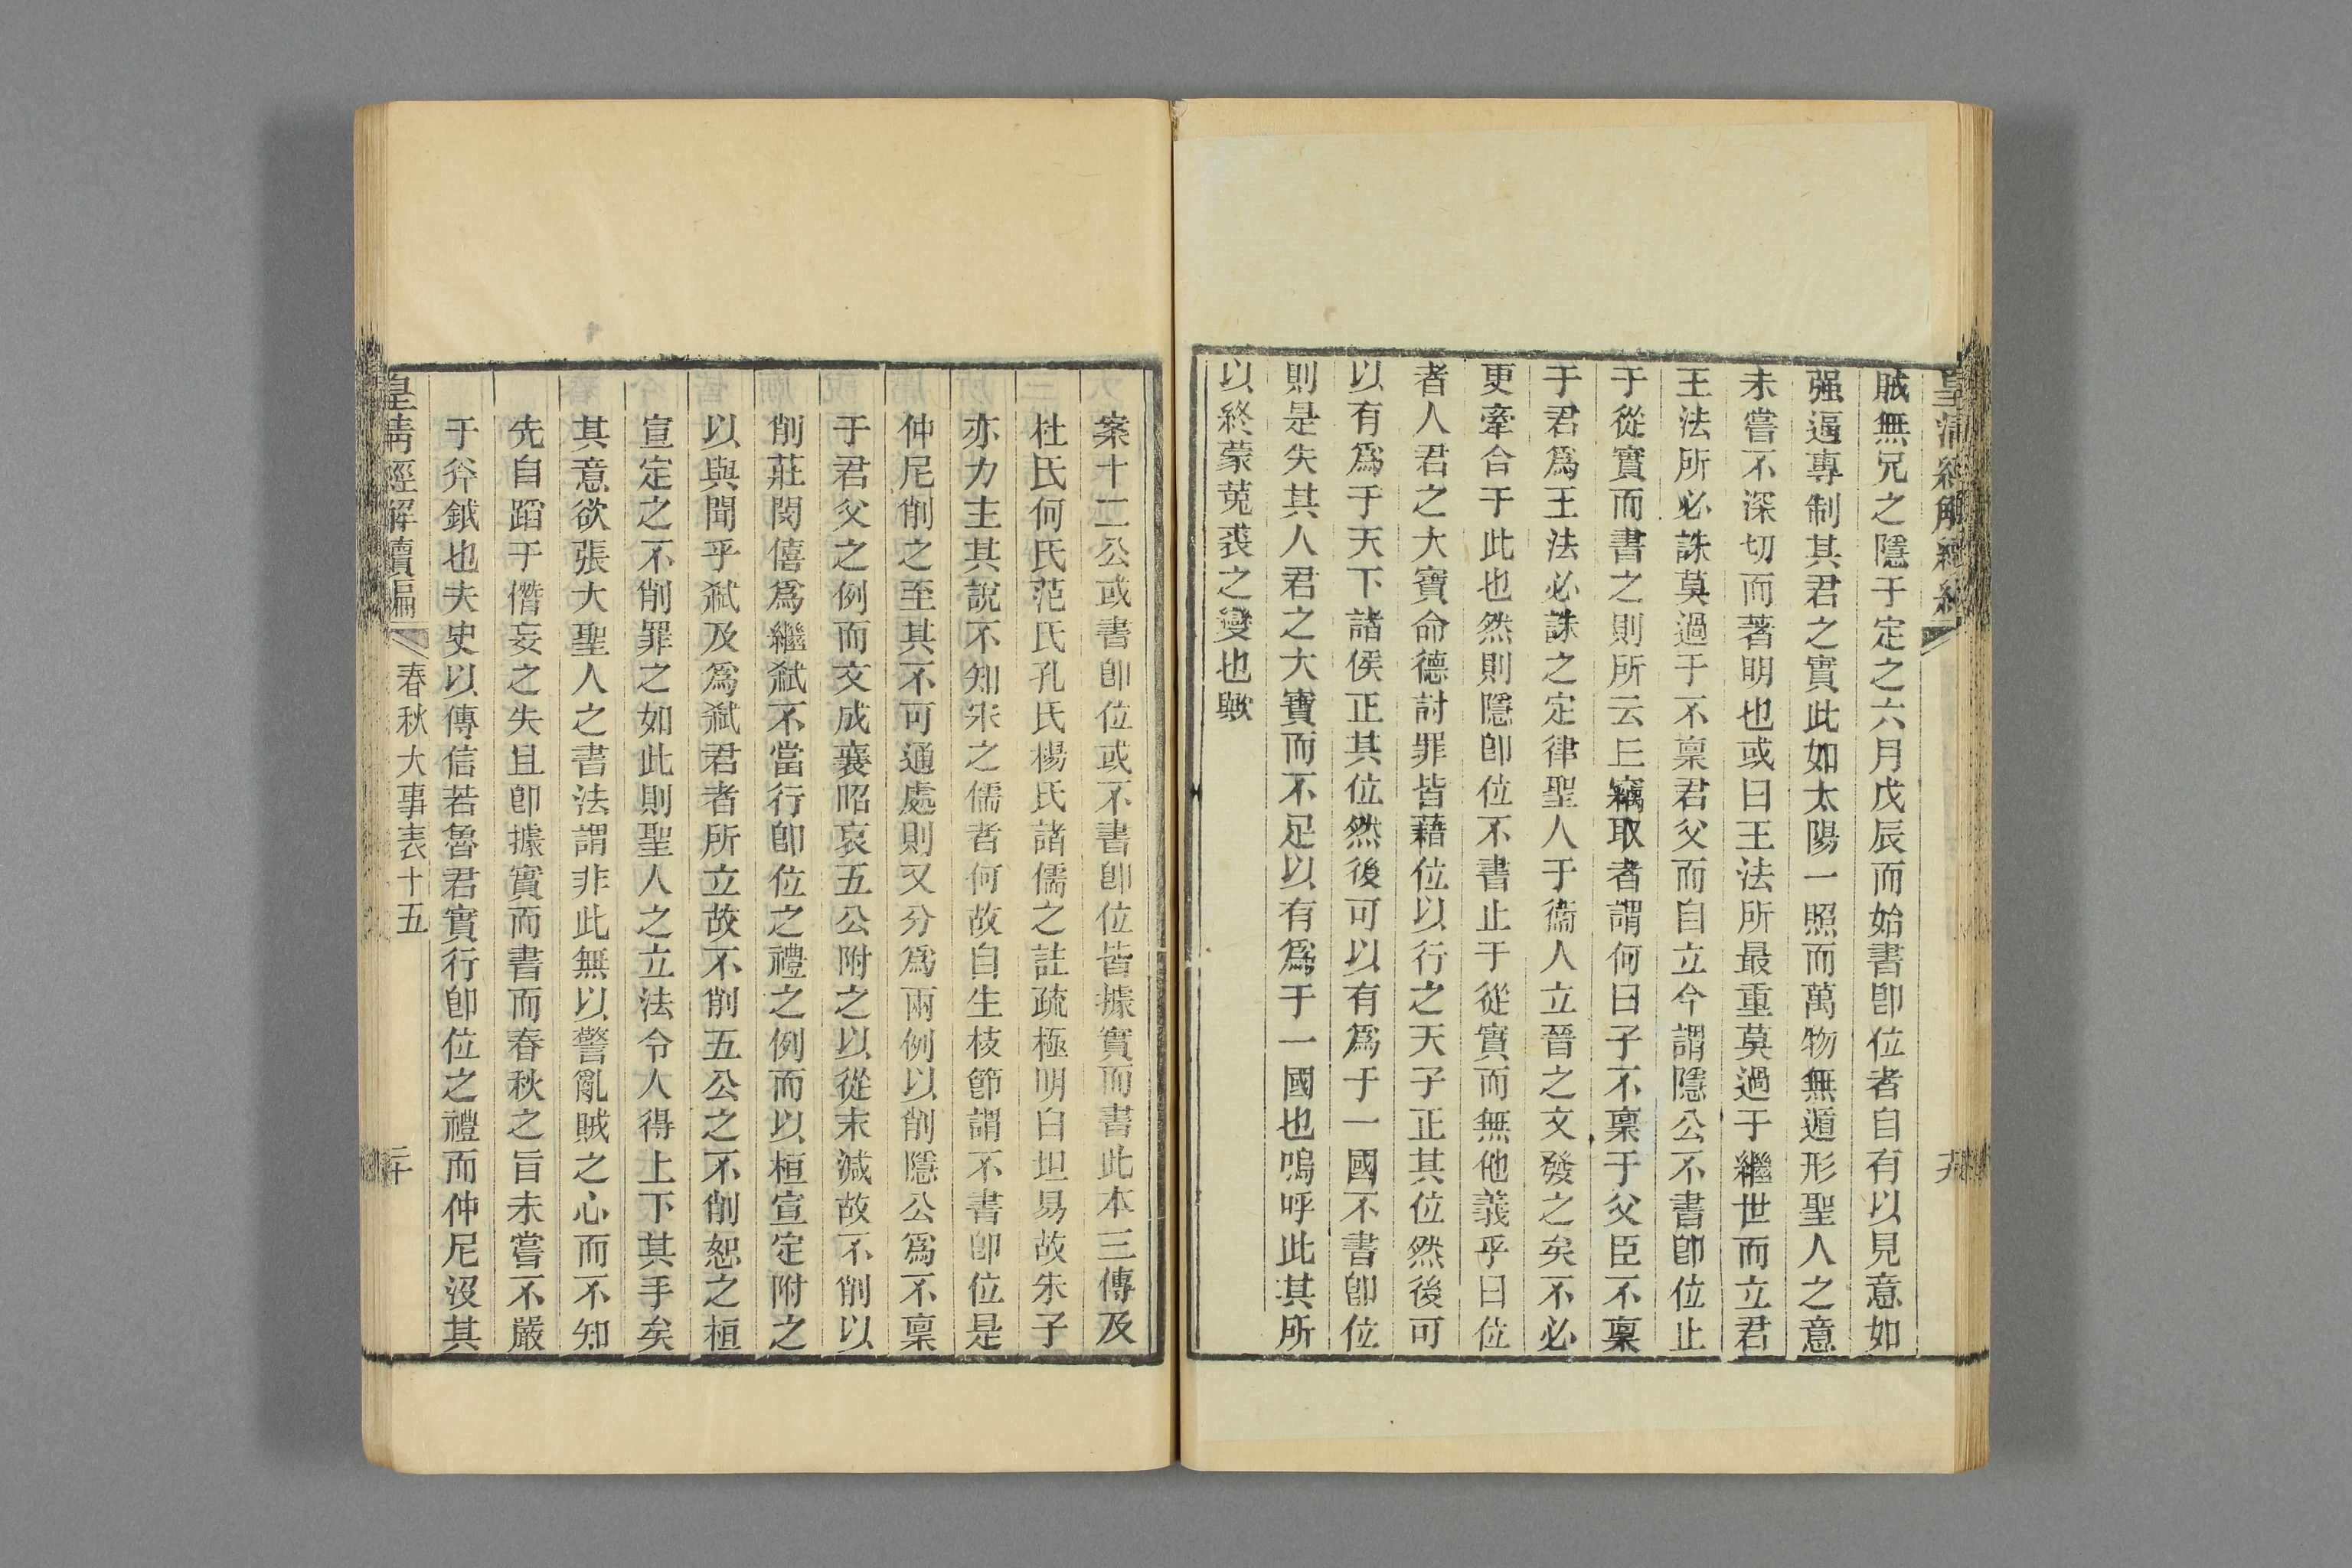 賊無兄之隱于定之六月戊辰而始書卽位者自有以見意如
强逼專制其君之實此如太陽一照而萬物無遁形聖人之意
未嘗不深切而著明也或曰王法所最重莫過于繼世而立君
王法所必誅莫過于不稟君父而自立今謂隱公不書卽位止
于從實而書之則所云上竊取者謂何曰子不稟于父臣不稟
于君爲王法必誅之定律聖人于衞人立晉之文發之矣不必
更牽合于此也然則隱卽位不書止于從實而無他義乎曰位
者人君之大寶命德討罪皆藉位以行之天子正其位然後可
以有爲于天下諸侯正其位然後可以有爲于一國不書卽位
則是失其人君之大寶而不足以有爲于一國也嗚呼此其所
以終蒙菟裘之變也歟
案十二公或書卽位或不書卽位皆據實而書此本三傳及
杜氏何氏范氏孔氏楊氏諸儒之註疏極明白坦易故朱子
亦力主其說不知宋之儒者何故自生枝節謂不書卽位是
仲尼削之至其不可通處則又分爲兩例以削隱公爲不稟
于君父之例而文成襄昭哀五公附之以從末減故不削以
削莊閔僖爲繼弒不當行卽位之禮之例而以桓宣定附之
以與聞乎弒及爲弒君者所立故不削五公之不削恕之桓
宣定之不削罪之如此則聖人之立法令人得上下其手矣
其意欲張大聖人之書法謂非此無以警亂賊之心而不知
先自蹈于僭妄之失且卽據實而書而春秋之旨未嘗不嚴
于斧鉞也夫史以傳信若魯君實行卽位之禮而仲尼沒其
皇淸經解續編 春秋大事表十五 二十